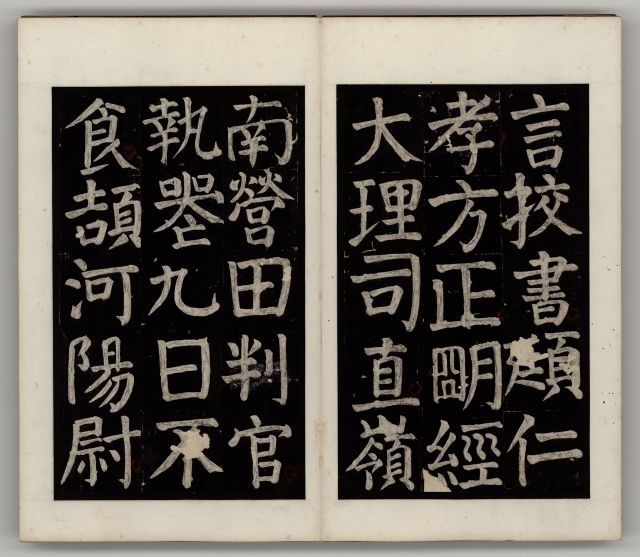 言挍書頵仁
孝方正明經
大理司直嶺
南營田判官
執喪九日不
食頡河陽尉